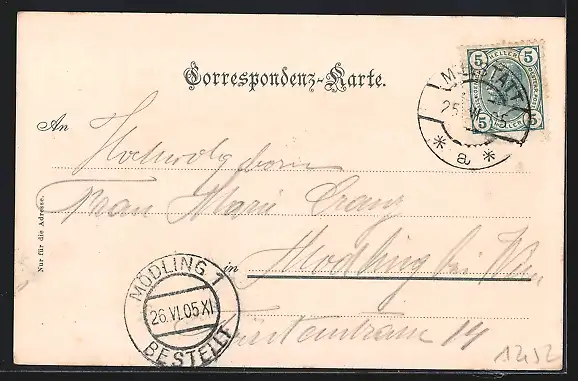 Correspondenz-Karte.
5 HELLER 5
25 VI 05
5 HELLER 5
* a *
An
Hochwolgeborn
Frau Marie
Nur für die Adresse.
in Mödling bei Wien
MÖDLING 1
26.VI.05.XI
BESTELLT
14
1252